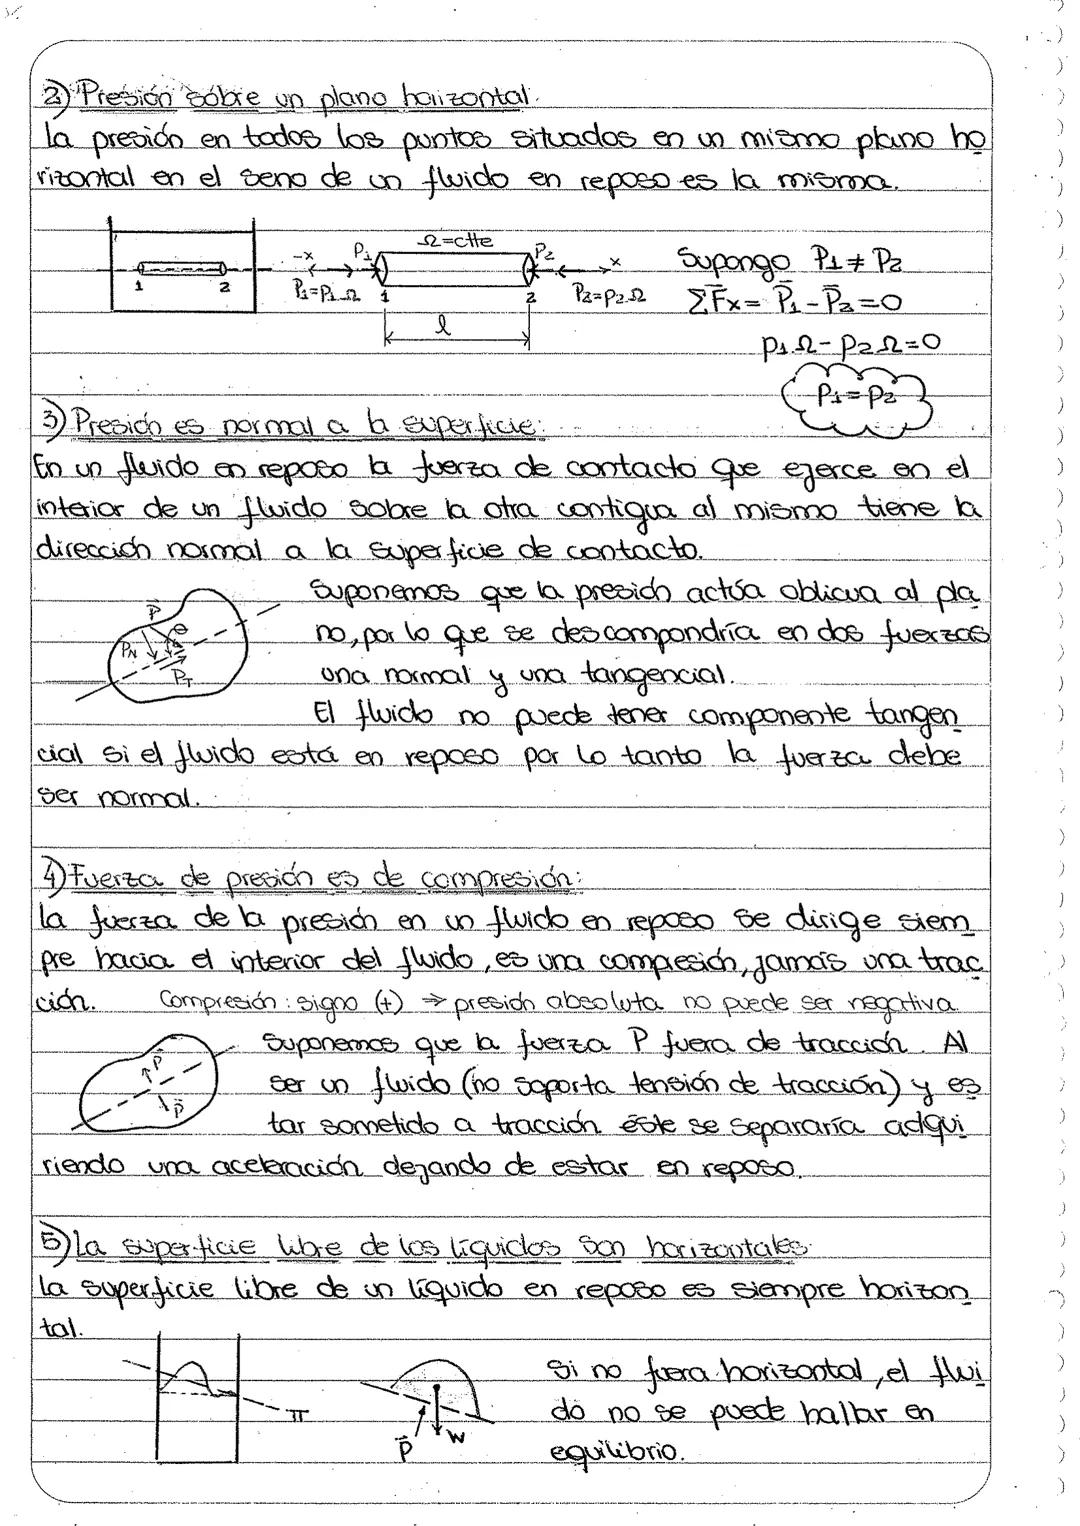 2) Presión sobre un plano horizontal.
La presión en todos los puntos situados en un mismo plano ho
rizontal en el seno de un fluido en reposo es la misma.
Ω=ctte
-x P1 P2 x
1 2 P1=P1.Ω 1 2 P2=P2.Ω
l
Supongo P1 ≠ P2
ΣFx = P1 - P2 = 0
p1.Ω - p2.Ω = 0
P1 = P2
3) Presión es normal a la superficie:
En un fluido en reposo la fuerza de contacto que ejerce en el
interior de un fluido sobre la otra contigua al mismo tiene la
dirección normal a la superficie de contacto.
P θ
PN
PT
Suponemos que la presión actúa oblicua al pla
no, por lo que se descompondría en dos fuerzas
una normal y una tangencial.
El fluido no puede tener componente tangen
cial si el fluido está en reposo por lo tanto la fuerza debe
ser normal.
4) Fuerza de presión es de compresión:
La fuerza de la presión en un fluido en reposo se dirige siem
pre hacia el interior del fluido, es una compresión, jamás una trac
ción. Compresión: signo (+) ⇒ presión absoluta no puede ser negativa.
P
P
Suponemos que la fuerza P fuera de tracción. Al
ser un fluido (no soporta tensión de tracción) y es
tar sometido a tracción éste se separaría adqui
riendo una aceleración dejando de estar en reposo.
5) La superficie libre de los líquidos son horizontales:
La superficie libre de un líquido en reposo es siempre horizon
tal.
π
P W
Si no fuera horizontal, el flui
do no se puede hallar en
equilibrio.